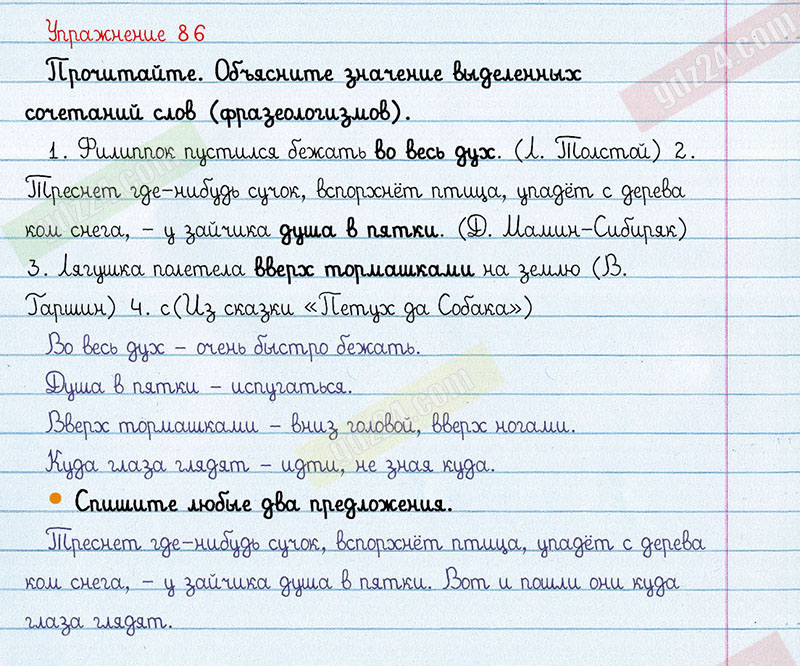 Упражнение 86
Прочитайте. Объясните значение выделенных
сочетаний слов (фразеологизмов).
1. Филиппок пустился бежать во весь дух. (Л. Толстой) 2.
Треснет где-нибудь сучок, вспорхнёт птица, упадёт с дерева
ком снега, – у зайчика душа в пятки. (Д. Мамин-Сибиряк)
3. Лягушка полетела вверх тормашками на землю (В.
Гаршин) 4. с(Из сказки «Петух да Собака»)
Во весь дух – очень быстро бежать.
Душа в пятки – испугаться.
Вверх тормашками – вниз головой, вверх ногами.
Куда глаза глядят – идти, не зная куда.
• Спишите любые два предложения.
Треснет где-нибудь сучок, вспорхнёт птица, упадёт с дерева
ком снега, – у зайчика душа в пятки. Вот и пошли они куда
глаза глядят.
gdz24.com
gdz24.com
gdz24.com